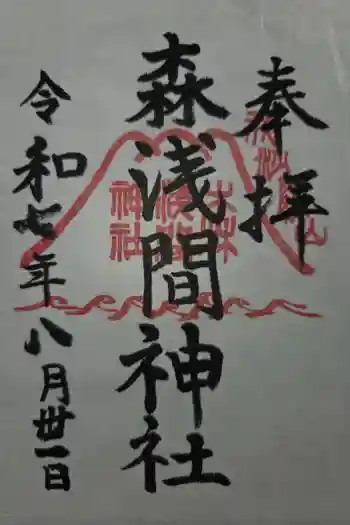 奉拝
森浅間神社
令和七年八月卅一日